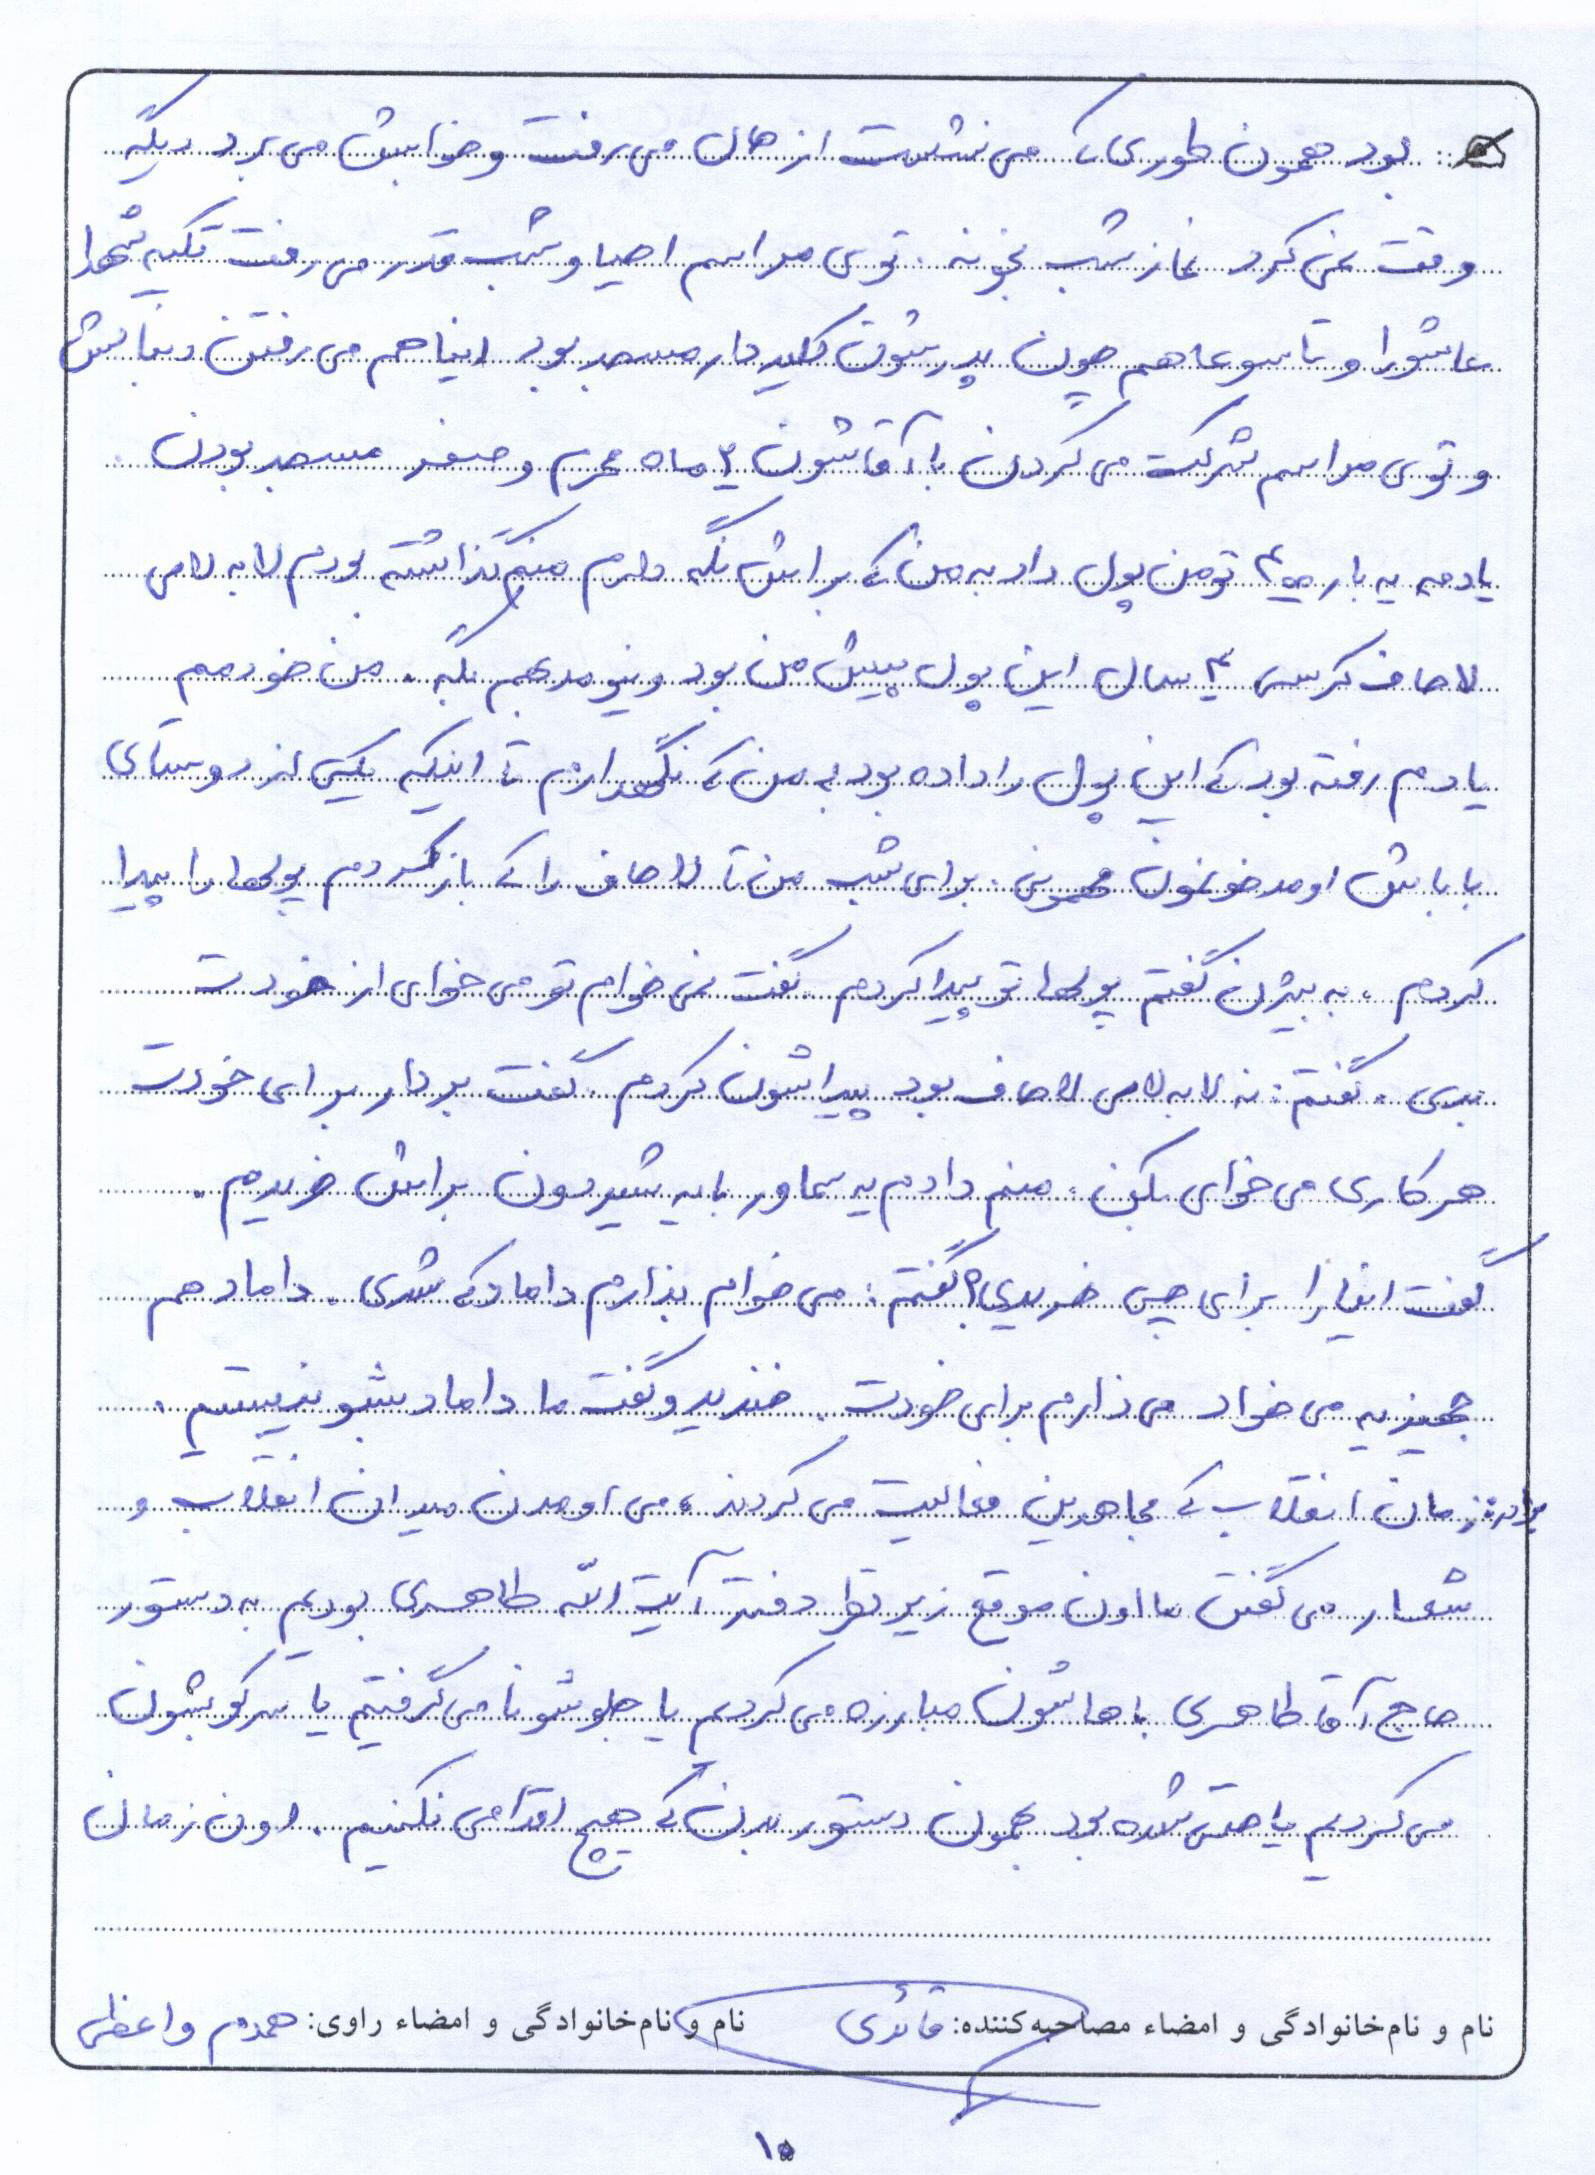 بود همون طوری که می نشست از حال می رفت و خوابش می برد دیگه
وقت نمی کرد نماز شب بخونه. توی مراسم احیا و شب قدر می رفت تکیه شهدا
عاشورا و تاسوعا هم چون پدرشون کلیددار مسجد بود اینا هم می رفتن دنبالش
و توی مراسم شرکت می کردن با آقاشون ۲ ماه محرم و صفر مسجد بودن.
یادمه یه بار تومن پول داد به من که براش نگه دارم منم گذاشته بودم لابه لای
لاحاف کرسی ۳ سال این پول پیش من بود و نیومد بهم بگه. من خودمم
یادم رفته بود که این پول را داده بود به من که نگهدارم تا اینکه یکی از روستای
باباش اومد خونمون مهمونی. برای شب من تا لاحاف را که باز کردم پولها را پیدا
کردم. به بیژن گفتم پولها تو پیدا کردم. گفت نمی خوام تو می خوای از خودت
بدی. گفتم: نه لابه لای لاحاف بود پیداشون کردم. گفت بردار برای خودت
هر کاری می خوای بکن. منم دادم یه سماور با یه شیردون براش خریدم.
گفت اینا را برای چی خریدی؟ گفتم: می خوام بذارم داماد که شدی. داماد هم
جهیزیه می خواد می ذارم برای خودت. خندید و گفت ما داماد بشو نیستیم.
برادر: زمان انقلاب که مجاهدین فعالیت می کردند، می اومدن میدان انقلاب و
شعار می گفتن ما اون موقع زیر نظر دفتر آیت الله طاهری بودیم به دستور
حاج آقا طاهری باهاشون مبارزه می کردیم یا جلوشونا می گرفتیم یا سرکوبشون
می کردیم یا حتی شده بود بهمون دستور بدن که هیچ اقدامی نکنیم. اون زمان
نام و نام‌خانوادگی و امضاء مصاحبه‌کننده: قائدی نام و نام‌خانوادگی و امضاء راوی: همدم واعظی
۱۵